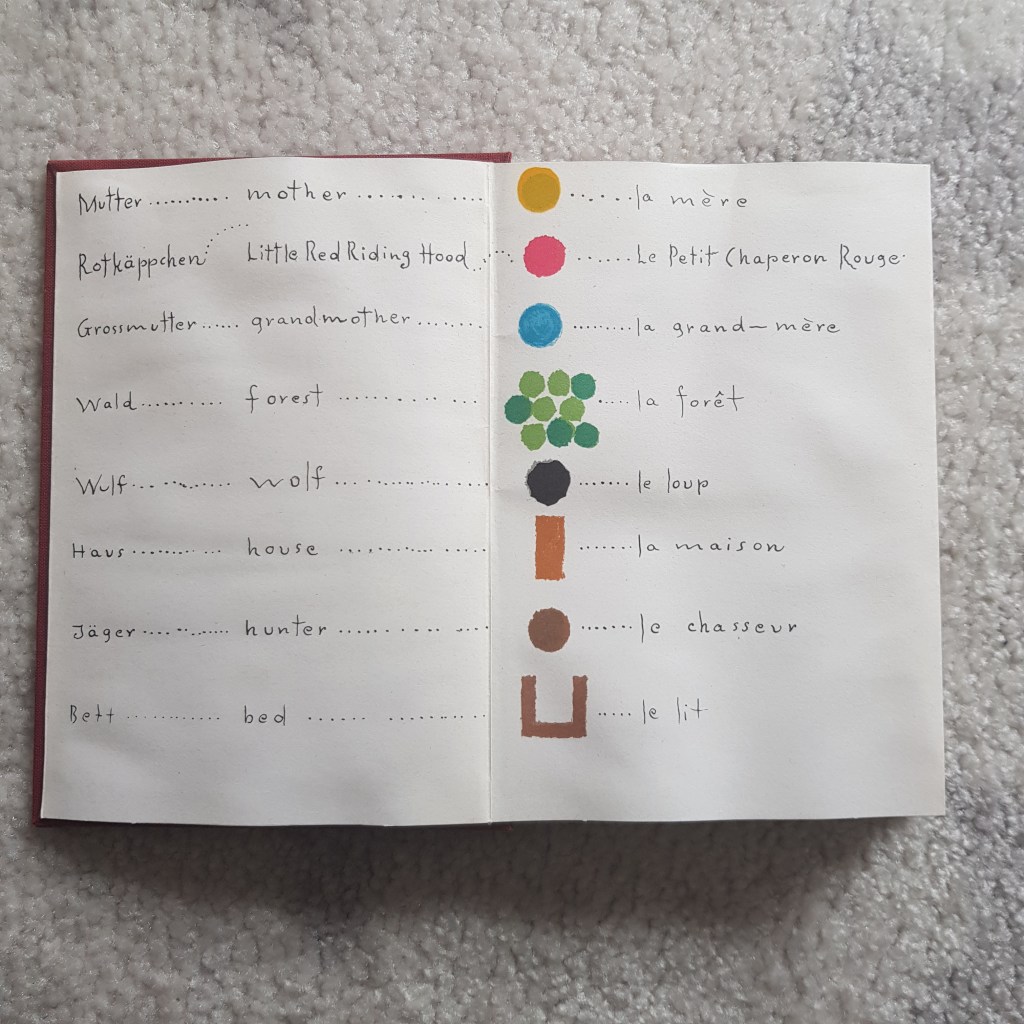 Mutter .......... mother .......... la mère
Rotkäppchen ...... Little Red Riding Hood ...... Le Petit Chaperon Rouge
Grossmutter ...... grandmother .......... la grand-mère
Wald .......... forest .......... la forêt
Wulf .......... wolf .......... le loup
Haus .......... house .......... la maison
Jäger .......... hunter .......... le chasseur
Bett .......... bed .......... le lit